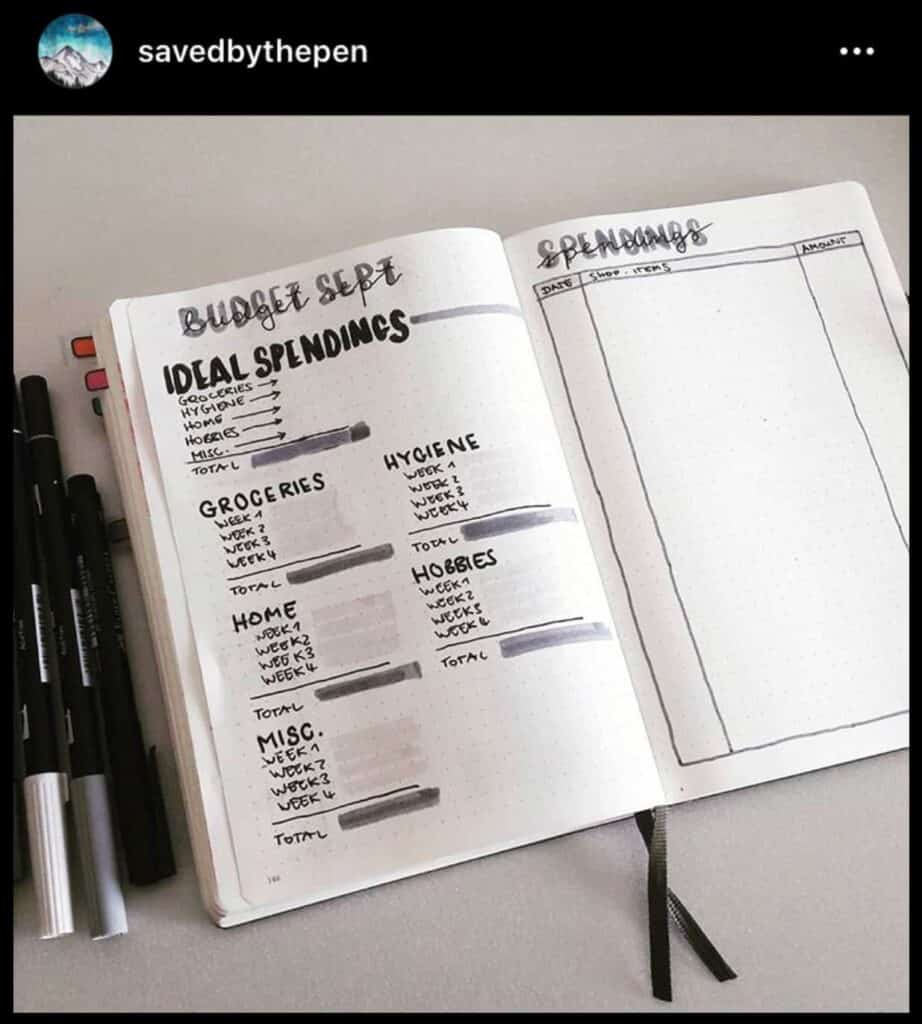 savedbythepen
BUDGET SEPT
budget sept
IDEAL SPENDINGS
GROCERIES →
HYGIENE →
HOME →
HOBBIES →
MISC. →
TOTAL
GROCERIES
WEEK 1
WEEK 2
WEEK 3
WEEK 4
TOTAL
HYGIENE
WEEK 1
WEEK 2
WEEK 3
WEEK 4
TOTAL
HOME
WEEK 1
WEEK 2
WEEK 3
WEEK 4
TOTAL
HOBBIES
WEEK 1
WEEK 2
WEEK 3
WEEK 4
TOTAL
MISC.
WEEK 1
WEEK 2
WEEK 3
WEEK 4
TOTAL
SPENDINGS
spendings
DATE SHOP · ITEMS AMOUNT